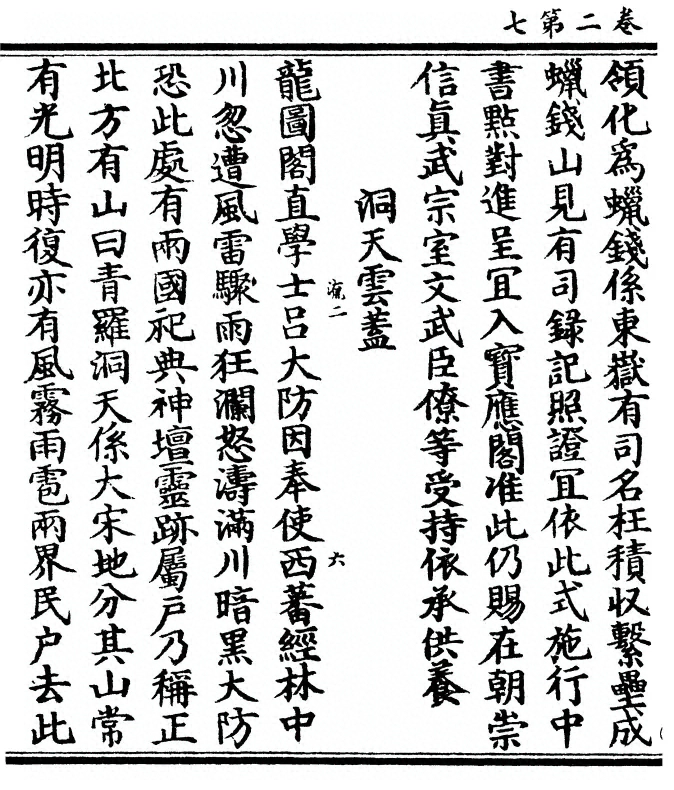 卷二第七
領化爲蠟錢係東嶽有司名枉積收繫壘成
蠟錢山見有司錄記照證冝依此式施行中
書㸃對進呈冝入寳應閣准此仍賜在朝崇
信眞武宗室文武臣僚等受持依承供養
洞天雲蓋
流二
六
龍圖閣直學士呂大防因奉使西蕃經林中
川忽遭風雷驟雨狂瀾怒濤滿川暗黑大防
恐此處有兩國祀典神壇靈跡屬户乃稱正
北方有山曰青羅洞天係大宋地分其山常
有光明時復亦有風霧雨雹兩界民户去此